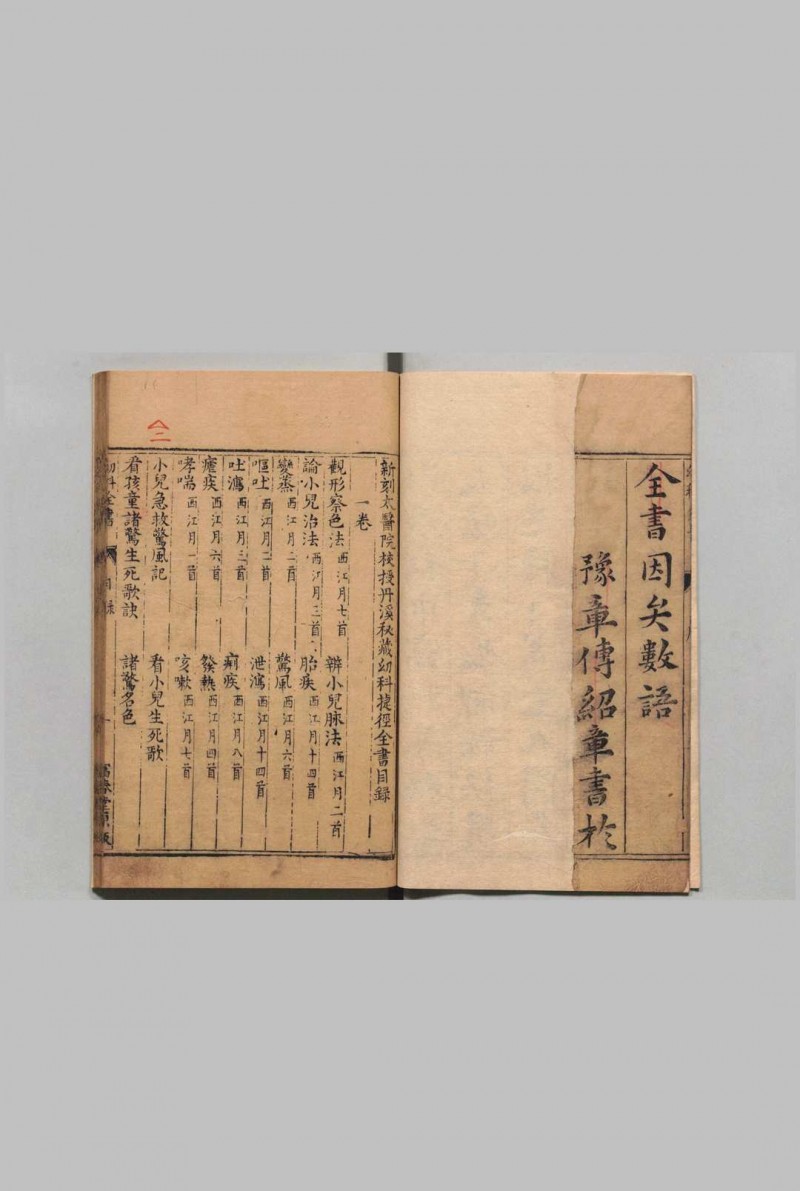 全書因矣數語
豫章傅紹章書於
新刻太醫院校授丹溪秘藏幼科捷徑全書目錄
一卷
觀形察色法 西江月七首 辨小兒脉法 西江月二首
論小兒治法 西江月三首 胎疾 西江月十四首
變蒸 西江月二首 驚風 西江月六首
嘔吐 西江月二首 泄瀉 西江月十四首
吐瀉 西江月三首 痢疾 西江月八首
瘧疾 西江月六首 發熱 西江月四首
哮喘 西江月一首 咳嗽 西江月七首
小兒急救驚風記 看小兒生死歌
看孩童諸驚生死歌訣 諸驚名色
幼科全書 目錄 一
二